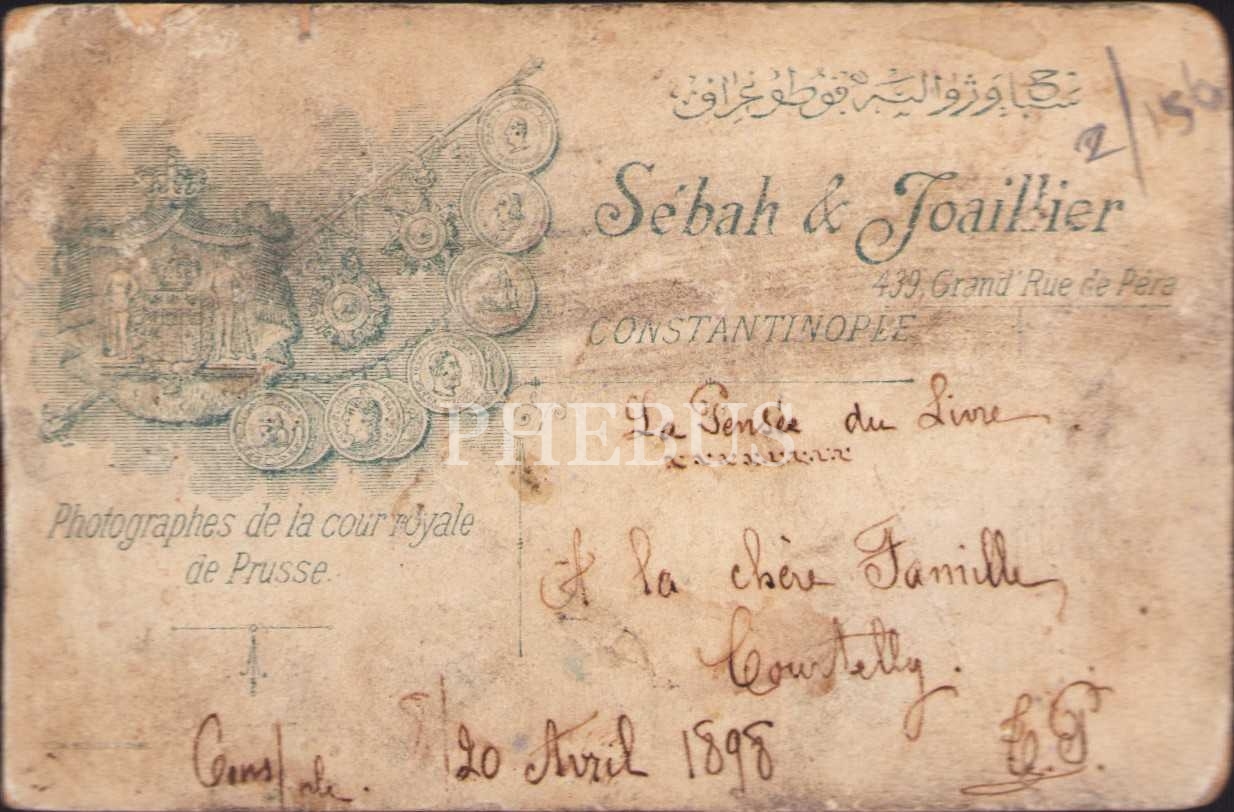 صباح وژوالیه فوطوغرافی
2/156
Sébah & Joaillier
439, Grand'Rue de Péra
CONSTANTINOPLE
PHEBUS
La Pensée du Livre.
Photographes de la cour royale
de Prusse.
A la chère Famille
Courtelly.
Cons/ple. 8/20 Avril 1898